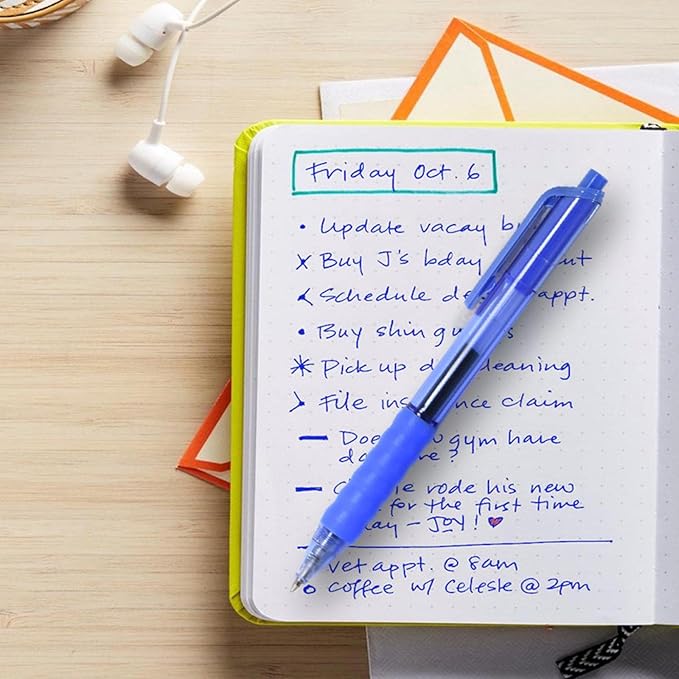 Friday Oct. 6
• Update vacay
x Buy J's bday
< Schedule appt.
• Buy shin
* Pick up
> File claim
— gym have
?
— rode his new
for the first time
– JOY! ♥
vet appt. @ 8am
coffee w/ Celeste @ 2pm